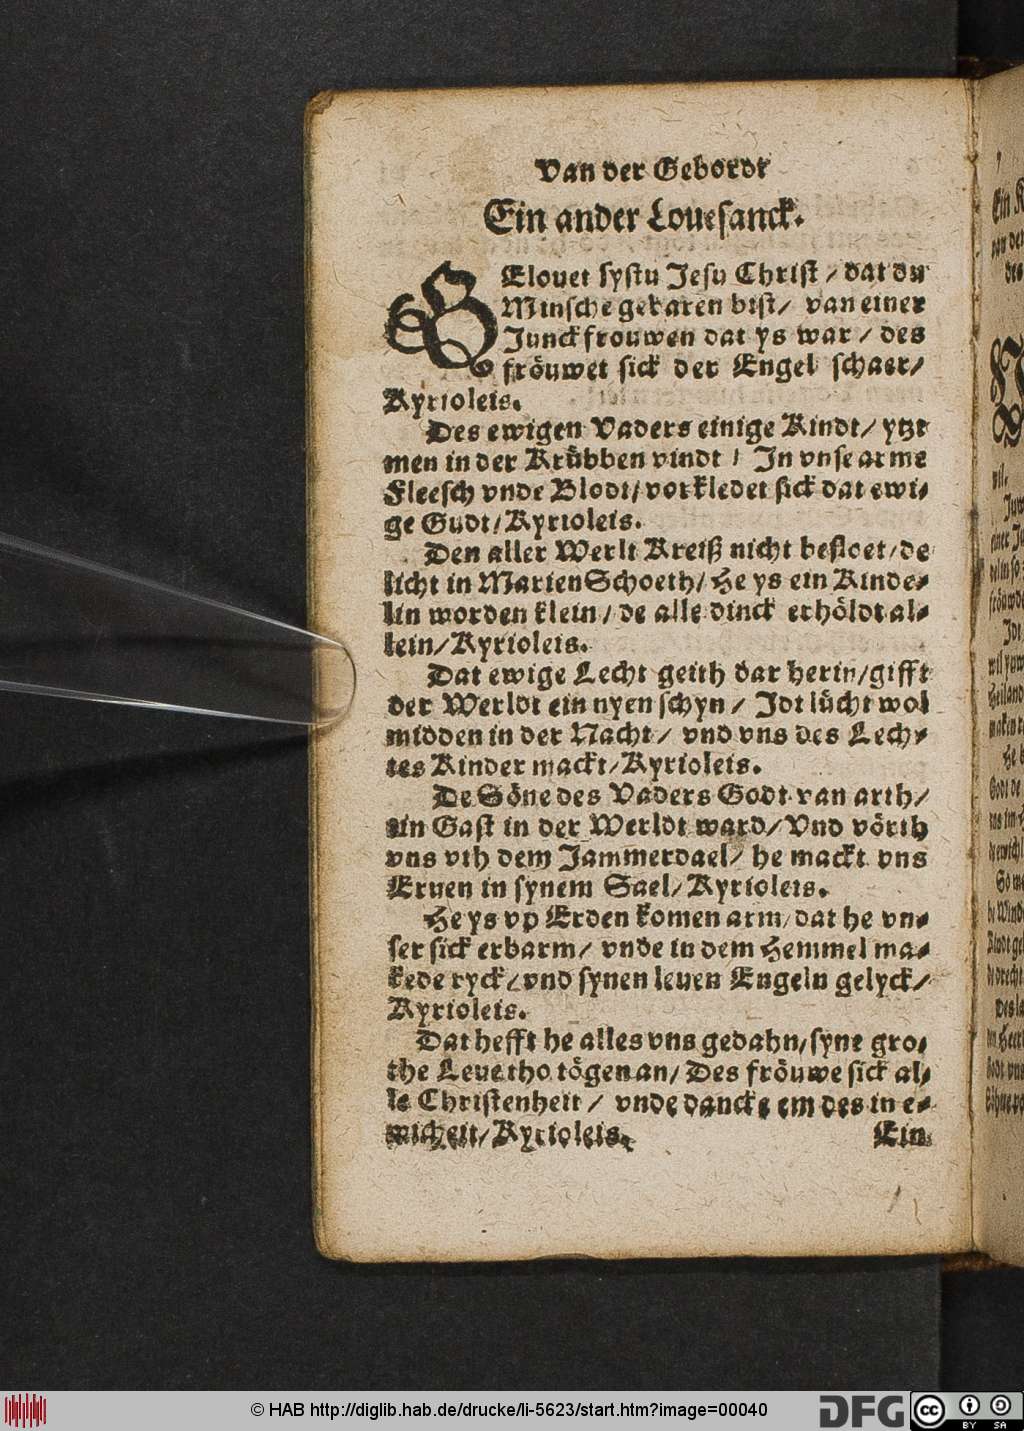 Van der Gebordt
Ein ander Louesanck.
GElouet systu Jesu Christ / dat du
Minsche gebaren bist / van einer
Junckfrouwen dat ys war / des
fröuwet sick der Engel schaer /
Kyrioleis.
Des ewigen Vaders einige Kindt / ytzt
men in der Krübben vindt / In vnse arme
Fleesch vnde Blodt / vorkledet sick dat ewi⸗
ge Gudt / Kyrioleis.
Den aller Werlt Kreiß nicht besloet / de
licht in Marien Schoeth / He ys ein Kinde⸗
lin worden klein / de alle dinck erhöldt al⸗
lein / Kyrioleis.
Dat ewige Lecht geith dar herin / gifft
der Werldt ein nyen schyn / Idt lücht wol
midden in der Nacht / vnd vns des Lech⸗
tes Kinder mackt / Kyrioleis.
De Söne des Vaders Godt van arth /
ein Gast in der Werldt ward / Vnd vörth
vns vth dem Jammerdael / he mackt vns
Eruen in synem Sael / Kyrioleis.
He ys vp Erden komen arm / dat he vn⸗
ser sick erbarm / vnde in dem Hemmel ma⸗
kede ryck / vnd synen leuen Engeln gelyck /
Kyrioleis.
Dat hefft he alles vns gedahn / syne gro⸗
the Leue tho tögen an / Des fröuwe sick al⸗
le Christenheit / vnde dancke em des in e⸗
wicheit / Kyrioleis.
Ein
© HAB http://diglib.hab.de/drucke/li-5623/start.htm?image=00040
DFG
cc
BY SA